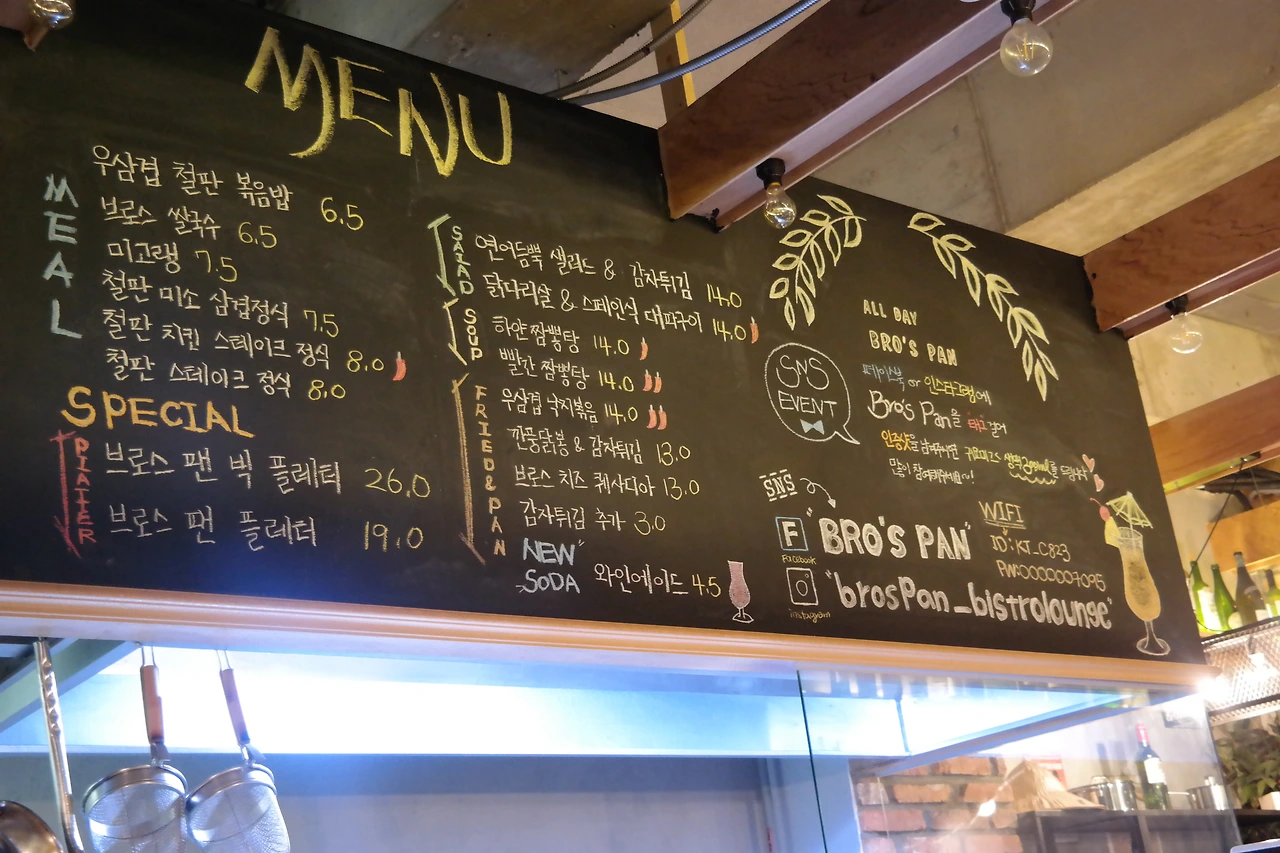 MENU
MEAL
우삼겹 철판 볶음밥 6.5
브로스 쌀국수 6.5
미고랭 7.5
철판 미소 삼겹정식 7.5
철판 치킨 스테이크 정식 8.0
철판 스테이크 정식 8.0
SPECIAL
PLATTER
브로스 팬 빅 플레터 26.0
브로스 팬 플레터 19.0
SALAD
연어듬뿍 샐러드 & 감자튀김 14.0
닭다리살 & 스페인식 대파구이 14.0
SOUP
하얀짬뽕탕 14.0
빨간짬뽕탕 14.0
FRIED&PAN
우삼겹 낙지볶음 14.0
깐풍닭봉 & 감자튀김 13.0
브로스 치즈 퀘사디아 13.0
감자튀김 추가 3.0
"NEW"
SODA
와인에이드 4.5
ALL DAY
BRO'S PAN
SNS
EVENT
페이스북 or 인스타그램에
Bro's Pan을 태그걸어
인증샷을 남겨주시면
많이 참여해주세요!
SNS
Facebook
"BRO'S PAN"
instagram
"brosPan_bistrolounge"
WIFI
ID:KT_C823
PW:0000007095